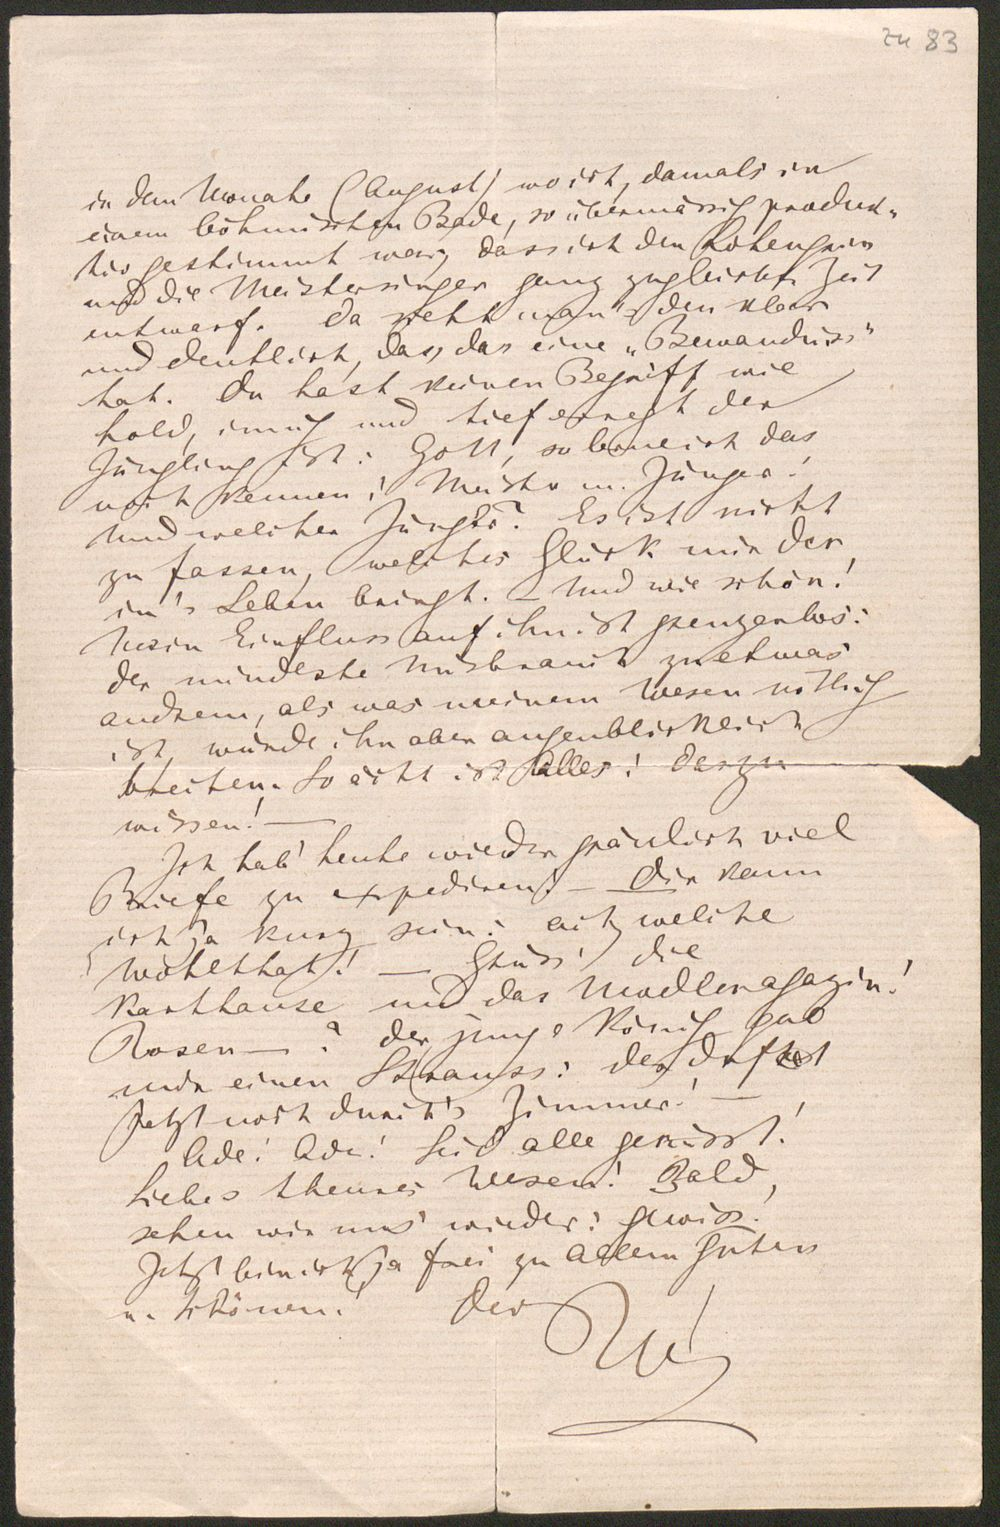 zu 83
in dem Monate (August) wo ich, damals in
einem böhmischen Bade, so übermässig produk-
tiv gestimmt war, dass ich den Lohengrin
und die Meistersinger ganz zu gleicher Zeit
entwarf. Da sieht man's den klar
und deutlich, dass das eine „Bewandniss"
hat. Du hast keinen Begriff wie
hold, innig und tief erregt der
Jüngling ist: Gott, so lerne ich das
noch kennen! Meister u. Jünger!
Und welcher Jünger? Es ist nicht
zu fassen, welches Glück mir der
in's Leben bringt. – Und wie schön!
Mein Einfluss auf ihn ist grenzenlos:
der mindeste Misbrauch zu etwas
andrem, als was meinem Wesen nöthig
ist, würde ihn aber augenblicklich
brechen. So ächt ist Alles! Das zu
wissen! –
Ich hab' heute wieder gräulich viel
Briefe zu expediren! – Dir kann
ich ja kurz sein: ach, welche
Wohlthat! – Grüss' die
Karthause und das Modemagazin!
Rosen – ? der junge König gab
mir einen Strauss: der duftet
jetzt noch durch's Zimmer! –
Ade! Ade! Seid alle gegrüsst!
Liebes theures Wesen! Bald,
sehen wir uns wieder: gewiss.
Jetzt bin ich ja frei zu allem Guten
u. Schönen! Der